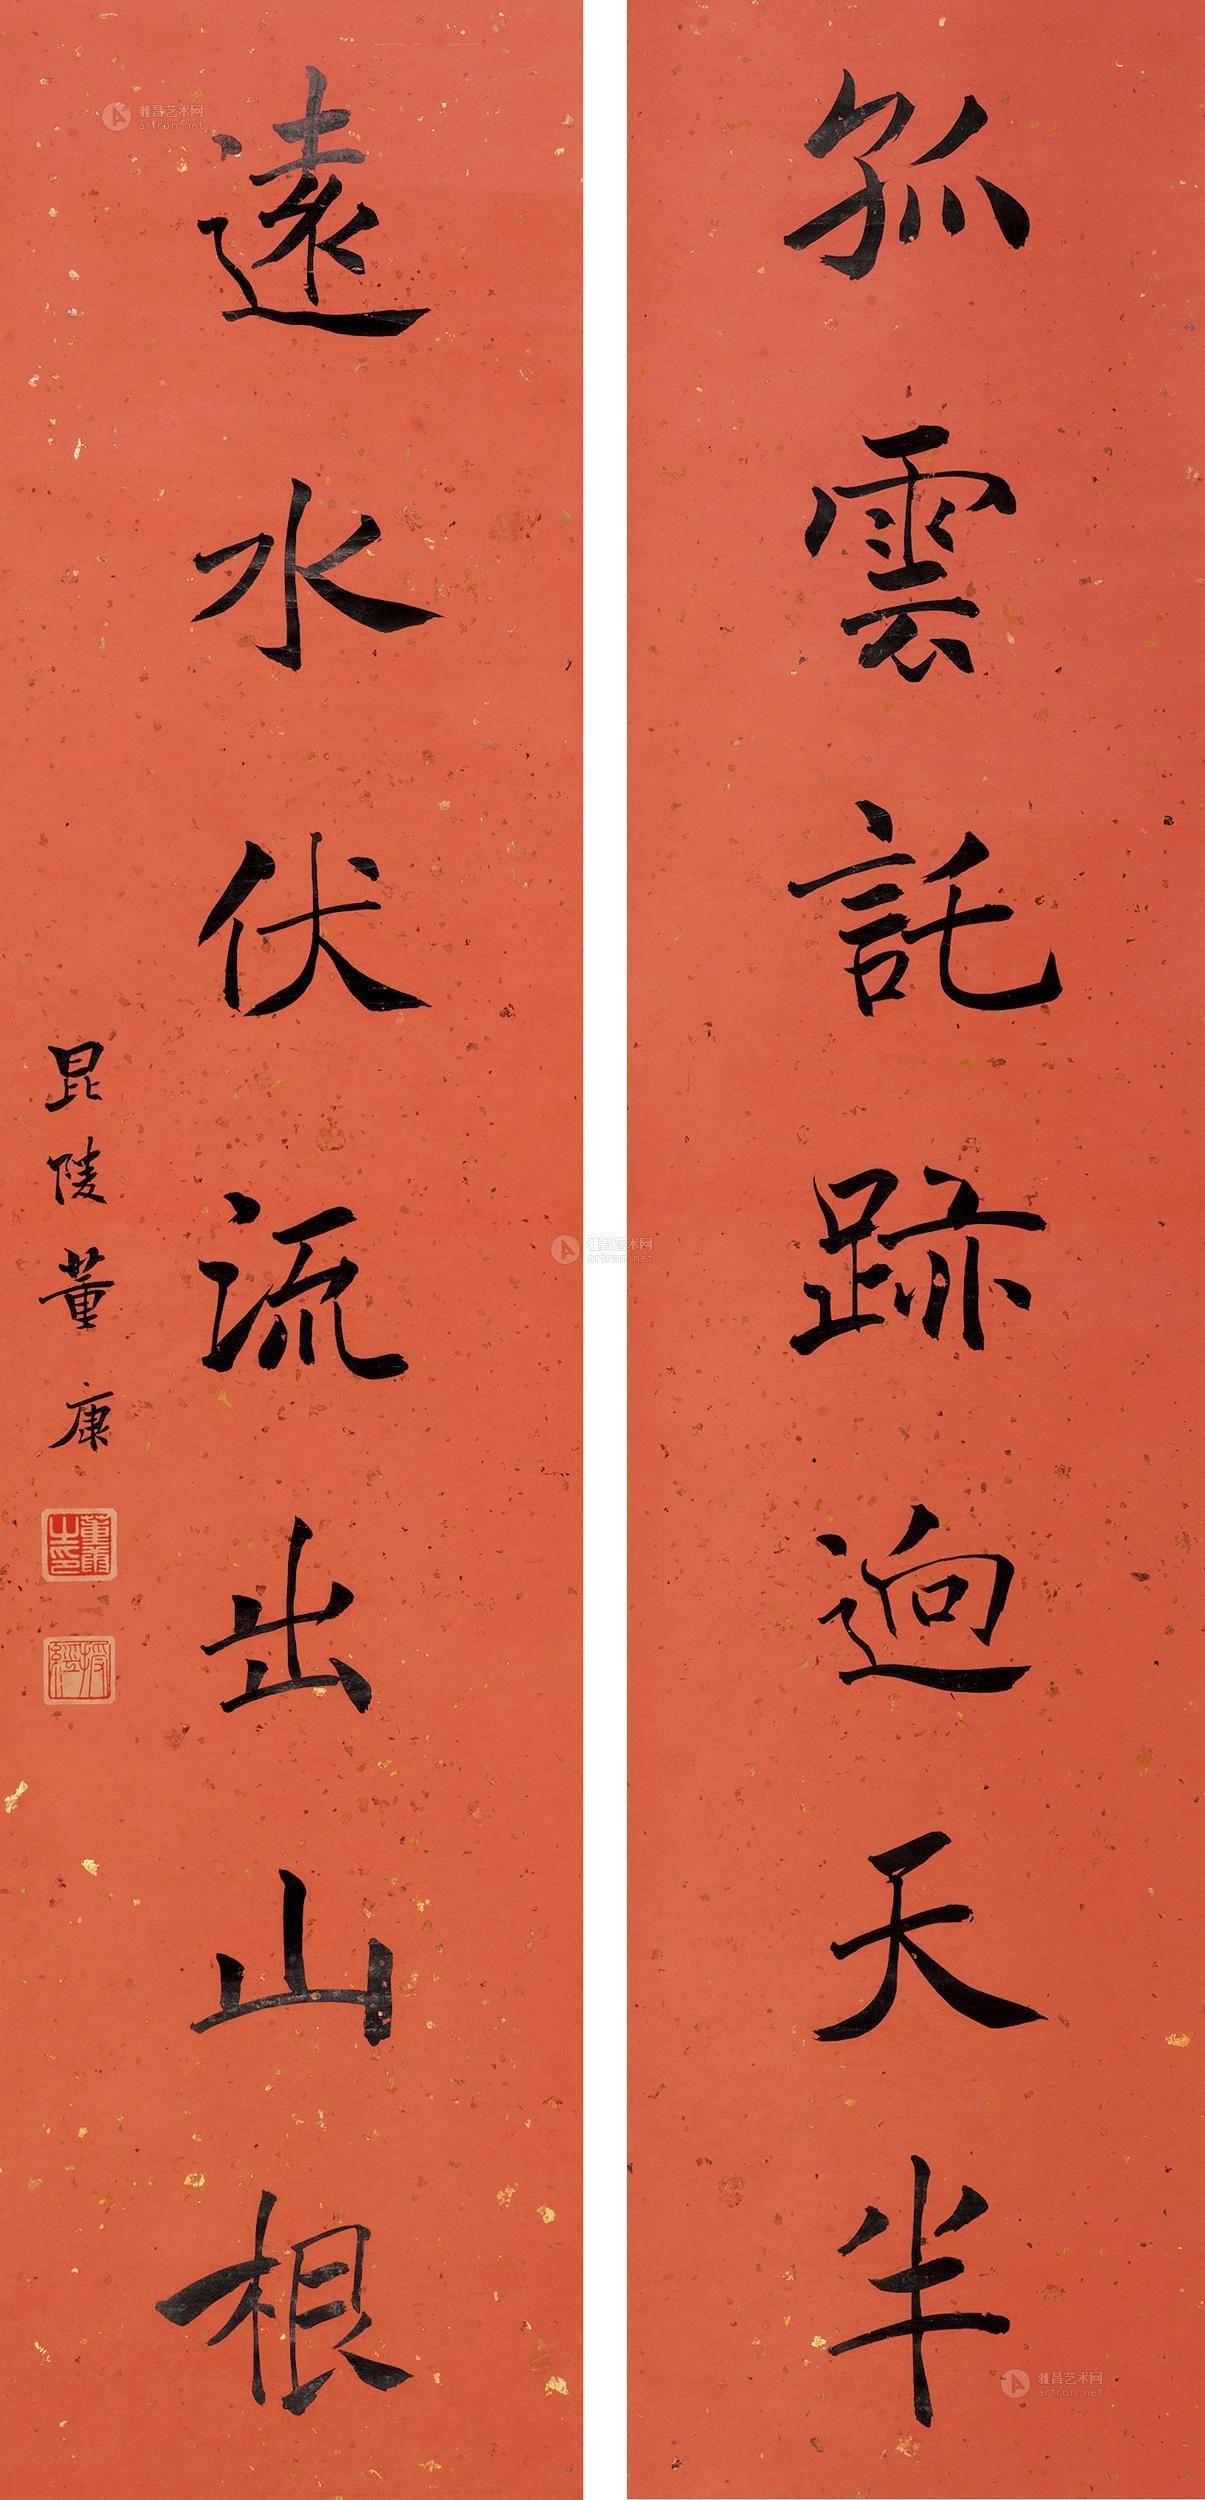 孤雲託跡迥天半
遠水伏流出山根
昆陵董康
董康之印
授經
雅昌艺术网
artron.net
雅昌艺术网
artron.net
雅昌艺术网
artron.net